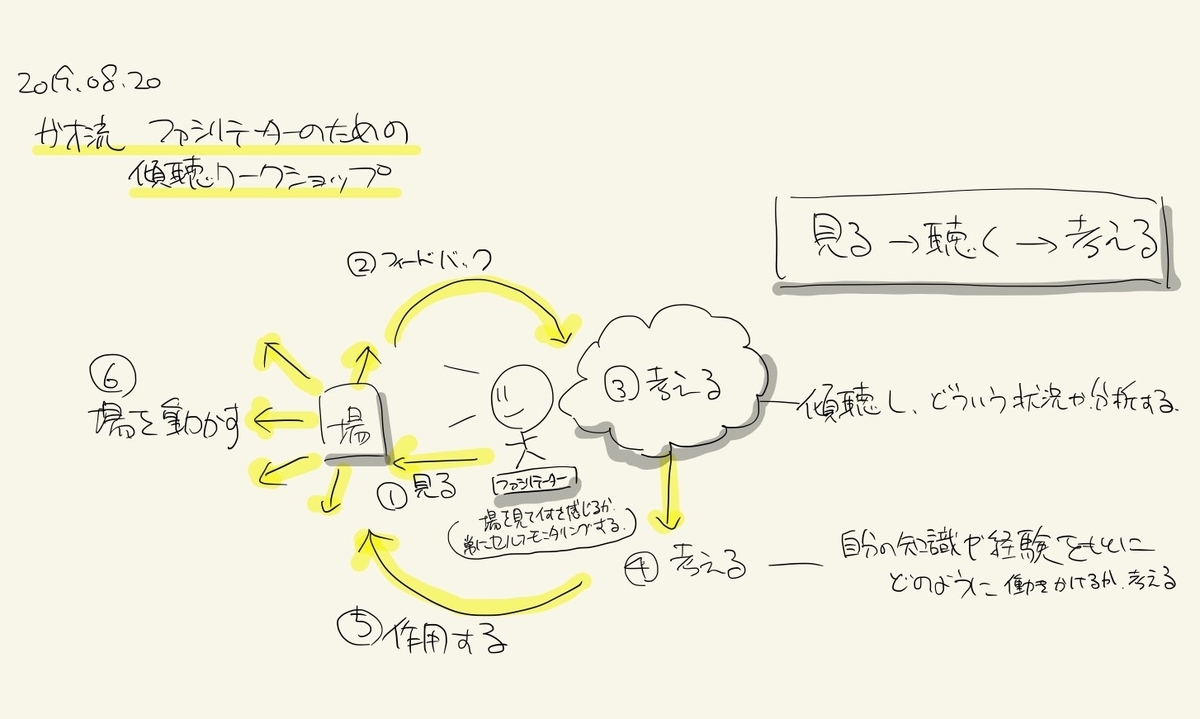 2019.08.20
ガオ流 ファシリテーターのための
傾聴ワークショップ
見る→聴く→考える
②フィードバック
③考える
傾聴し、どういう状況か分析する。
⑥
場を動かす
場
①見る
ファシリテーター
(場を見て何を感じるか
常にセルフモニタリングする。)
④考える
自分の知識や経験をもとに
どのように働きかけるか考える
⑤作用する